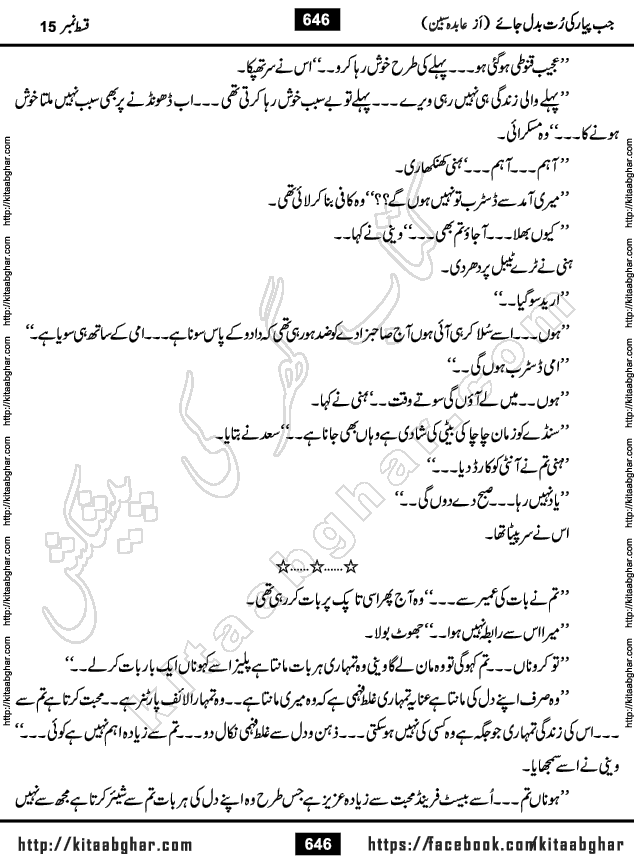 جب پیار کی رُت بدل جائے (از عابدہ سبین) 646 قسط نمبر 15
’’عجیب قنوطی ہو گئی ہو۔۔۔پہلے کی طرح خوش رہا کرو۔۔‘‘اس نے سر تھپکا۔
’’پہلے والی زندگی ہی نہیں رہی ویرے۔۔۔پہلے تو بے سبب خوش رہا کرتی تھی۔۔۔اب ڈھونڈنے پر بھی سبب نہیں ملتا خوش
ہونے کا۔۔۔‘‘وہ مسکرائی۔
’’آہم۔۔۔آہم۔۔۔‘‘ہنی کھنکھاری۔
’’میری آمد سے ڈسٹرب تو نہیں ہوں گے؟؟‘‘وہ کافی بنا کر لائی تھی۔
’’کیوں بھلا۔۔۔آجاؤ تم بھی۔۔۔‘‘وینی نے کہا۔۔
ہنی نے ٹرے ٹیبل پر دھر دی۔
’’ارید سو گیا۔۔‘‘
’’ہوں۔۔۔اسے سُلا کر ہی آئی ہوں آج صاحبزادے کو ضد ہو رہی تھی کہ دادو کے پاس سونا ہے۔۔۔امی کے ساتھ ہی سویا ہے۔‘‘
’’امی ڈسٹرب ہوں گی۔۔‘‘
’’ہوں۔۔میں لے آؤں گی سوتے وقت۔۔‘‘ہنی نے کہا۔
’’سنڈے کو زمان چاچا کی بیٹی کی شادی ہے وہاں بھی جانا ہے۔۔‘‘سعد نے بتایا۔
’’ہنی تم نے آنٹی کو کارڈ دیا۔۔۔‘‘
’’یاد نہیں رہا۔۔۔صبح دے دوں گی۔۔‘‘
اس نے سر پیٹا تھا۔
☆......☆......☆
’’تم نے بات کی عمیر سے۔۔۔‘‘وہ آج پھر اسی ٹاپک پر بات کر رہی تھی۔
’’میرا اس سے رابطہ نہیں ہوا۔۔‘‘جھوٹ بولا۔
’’تو کرو ناں۔۔۔تم کہو گی تو وہ مان لے گا وینی وہ تمہاری ہر بات مانتا ہے پلیز اسے کہو ناں ایک بار بات کر لے۔۔‘‘
’’وہ صرف اپنے دل کی مانتا ہے عنایہ تمہاری غلط فہمی ہے کہ وہ میری مانتا ہے۔۔وہ تمہارا لائف پارٹنر ہے۔۔محبت کرتا ہے تم سے
۔۔۔اس کی زندگی تمہاری جو جگہ ہے وہ کسی کی نہیں ہو سکتی۔۔۔ذہن و دل سے غلط فہمی نکال دو۔۔۔تم سے زیادہ اہم نہیں ہے کوئی۔۔۔‘‘
وینی نے اسے سمجھایا۔
’’ہو ناں تم۔۔۔اُسے بیسٹ فرینڈ محبت سے زیادہ عزیز ہے جس طرح وہ اپنے دل کی ہر بات تم سے شیئر کرتا ہے مجھ سے نہیں
http://kitaabghar.com 646 https://facebook.com/kitaabghar
http://kitaabghar.com http://kitaabghar.com http://kitaabghar.com http://kitaabghar.com http://kitaabghar.com http://kitaabghar.com
http://kitaabghar.com http://kitaabghar.com http://kitaabghar.com http://kitaabghar.com http://kitaabghar.com http://kitaabghar.com
کتاب گھر کی پیشکش
kitaabghar.com